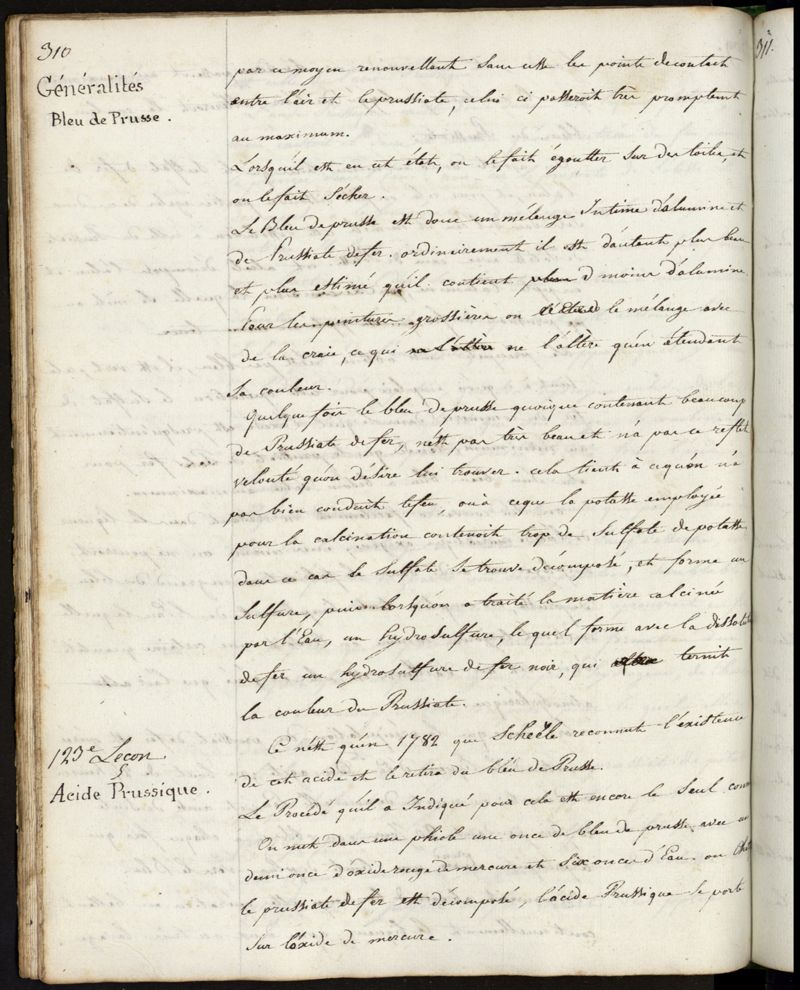 310
311.
Généralités
Bleu de Prusse.
par ce moyen renouvellant sans cesse les points de contact
entre l'air et le prussiate, celui ci passeroit très promptemt
au maximum.
Lorsqu'il est en cet état, on le fait égoutter sur des toiles, et
on le fait sécher.
Le Bleu de prusse est donc un mélange Intime d'alumine et
de Prussiate de fer. ordinairement il est d'autant plus beau
et plus estimé qu'il contient moins d'alumine
Pour les peintures grossières on le mélange avec
de la craie, ce qui ne l'altère qu'en étendant
sa couleur.
Quelque fois le bleu de prusse quoique contenant beaucoup
de Prussiate de fer, n'est pas très beau et n'a pas ce reflet
velouté qu'on désire lui trouver. cela tient à ce qu'on n'a
pas bien conduit le feu, ou à ce que la potasse employée
pour la calcination contenoit trop de Sulfate de potasse
dans ce cas le Sulfate se trouve décomposé, et forme un
Sulfure, puis lorsqu'on a traité la matière calciné
par l'Eau, un hydrosulfure, le quel forme avec la dissolut
de fer un hydrosulfure de fer noir, qui ternit
la couleur du Prussiate.
123e Leçon
Acide Prussique.
Ce n'est qu'en 1782 que Scheèle reconnut l'existence
de cet acide et le retira du bleu de Prusse.
Le Procédé qu'il a Indiqué pour cela est encore le Seul connu
On met dans une phiole une once de bleu de prusse avec un
demi once d'oxide rouge de mercure et six once d'Eau. on
le prussiate de fer est décomposé, l'acide Prussique se porte
sur l'oxide de mercure.